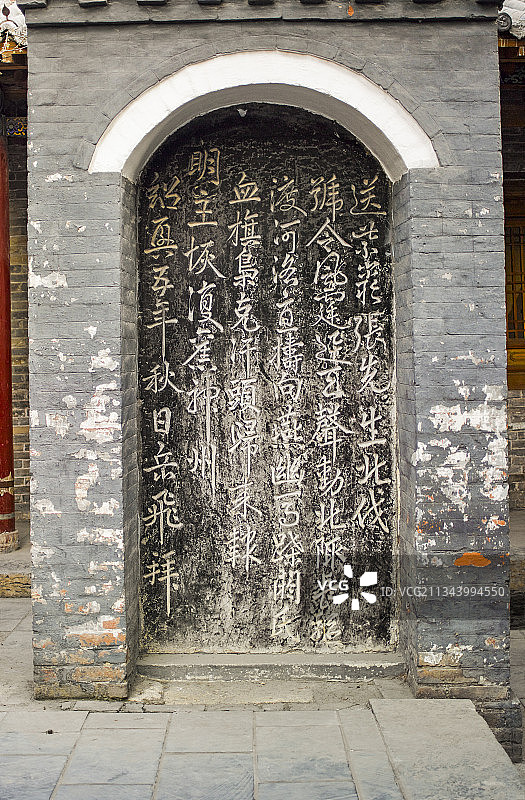 送紫巖張先生北伐
號令風霆迅天聲動北陬長驅
渡河洛直搗向燕幽馬蹀閼氏
血旗梟克汗頭歸來報
明主恢復舊神州
紹興五年秋日岳飛拜
VCG